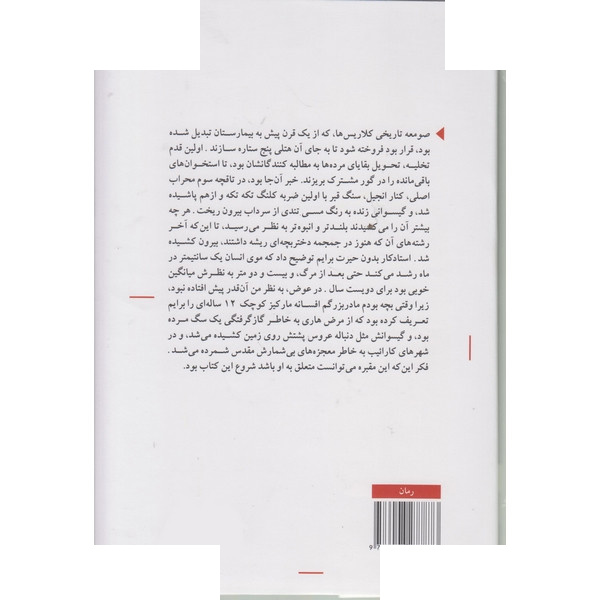 صومعه تاریخی کلاریس‌ها، که از یک قرن پیش به بیمارستان تبدیل شده
بود، قرار بود فروخته شود تا به جای آن هتلی پنج ستاره سازند . اولین قدم
تخلیه، تحویل بقایای مرده‌ها به مطالبه کنندگانشان بود، تا استخوان‌های
باقی‌مانده را در گور مشترک بریزند. خبر آن‌جا بود، در تاقچه سوم محراب
اصلی، کنار انجیل، سنگ قبر با اولین ضربه کلنگ تکه تکه و ازهم پاشیده
شد، و گیسوانی زنده به رنگ مسی تندی از سرداب بیرون ریخت . هر چه
بیشتر آن را می‌کشیدند بلندتر و انبوه‌تر به نظر می‌رسید، تا این‌که آخر
رشته‌های آن که هنوز در جمجمه دختربچه‌ای ریشه داشتند، بیرون کشیده
شد . استادکار بدون حیرت برایم توضیح داد که موی انسان یک سانتیمتر در
ماه رشد می‌کند حتی بعد از مرگ، و بیست و دو متر به نظرش میانگین
خوبی بود برای دویست سال . در عوض، به نظر من آن‌قدر پیش افتاده نبود،
زیرا وقتی بچه بودم مادربزرگم افسانه مارکیز کوچک ۱۲ ساله‌ای را برایم
تعریف کرده بود که از مرض هاری به خاطر گازگرفتگی یک سگ مرده
بود، و گیسوانش مثل دنباله عروس پشتش روی زمین کشیده می‌شد، و در
شهرهای کارائیب به خاطر معجزه‌های بی‌شمارش مقدس شمرده می‌شد .
فکر این‌که این مقبره می‌توانست متعلق به او باشد شروع این کتاب بود.
رمان